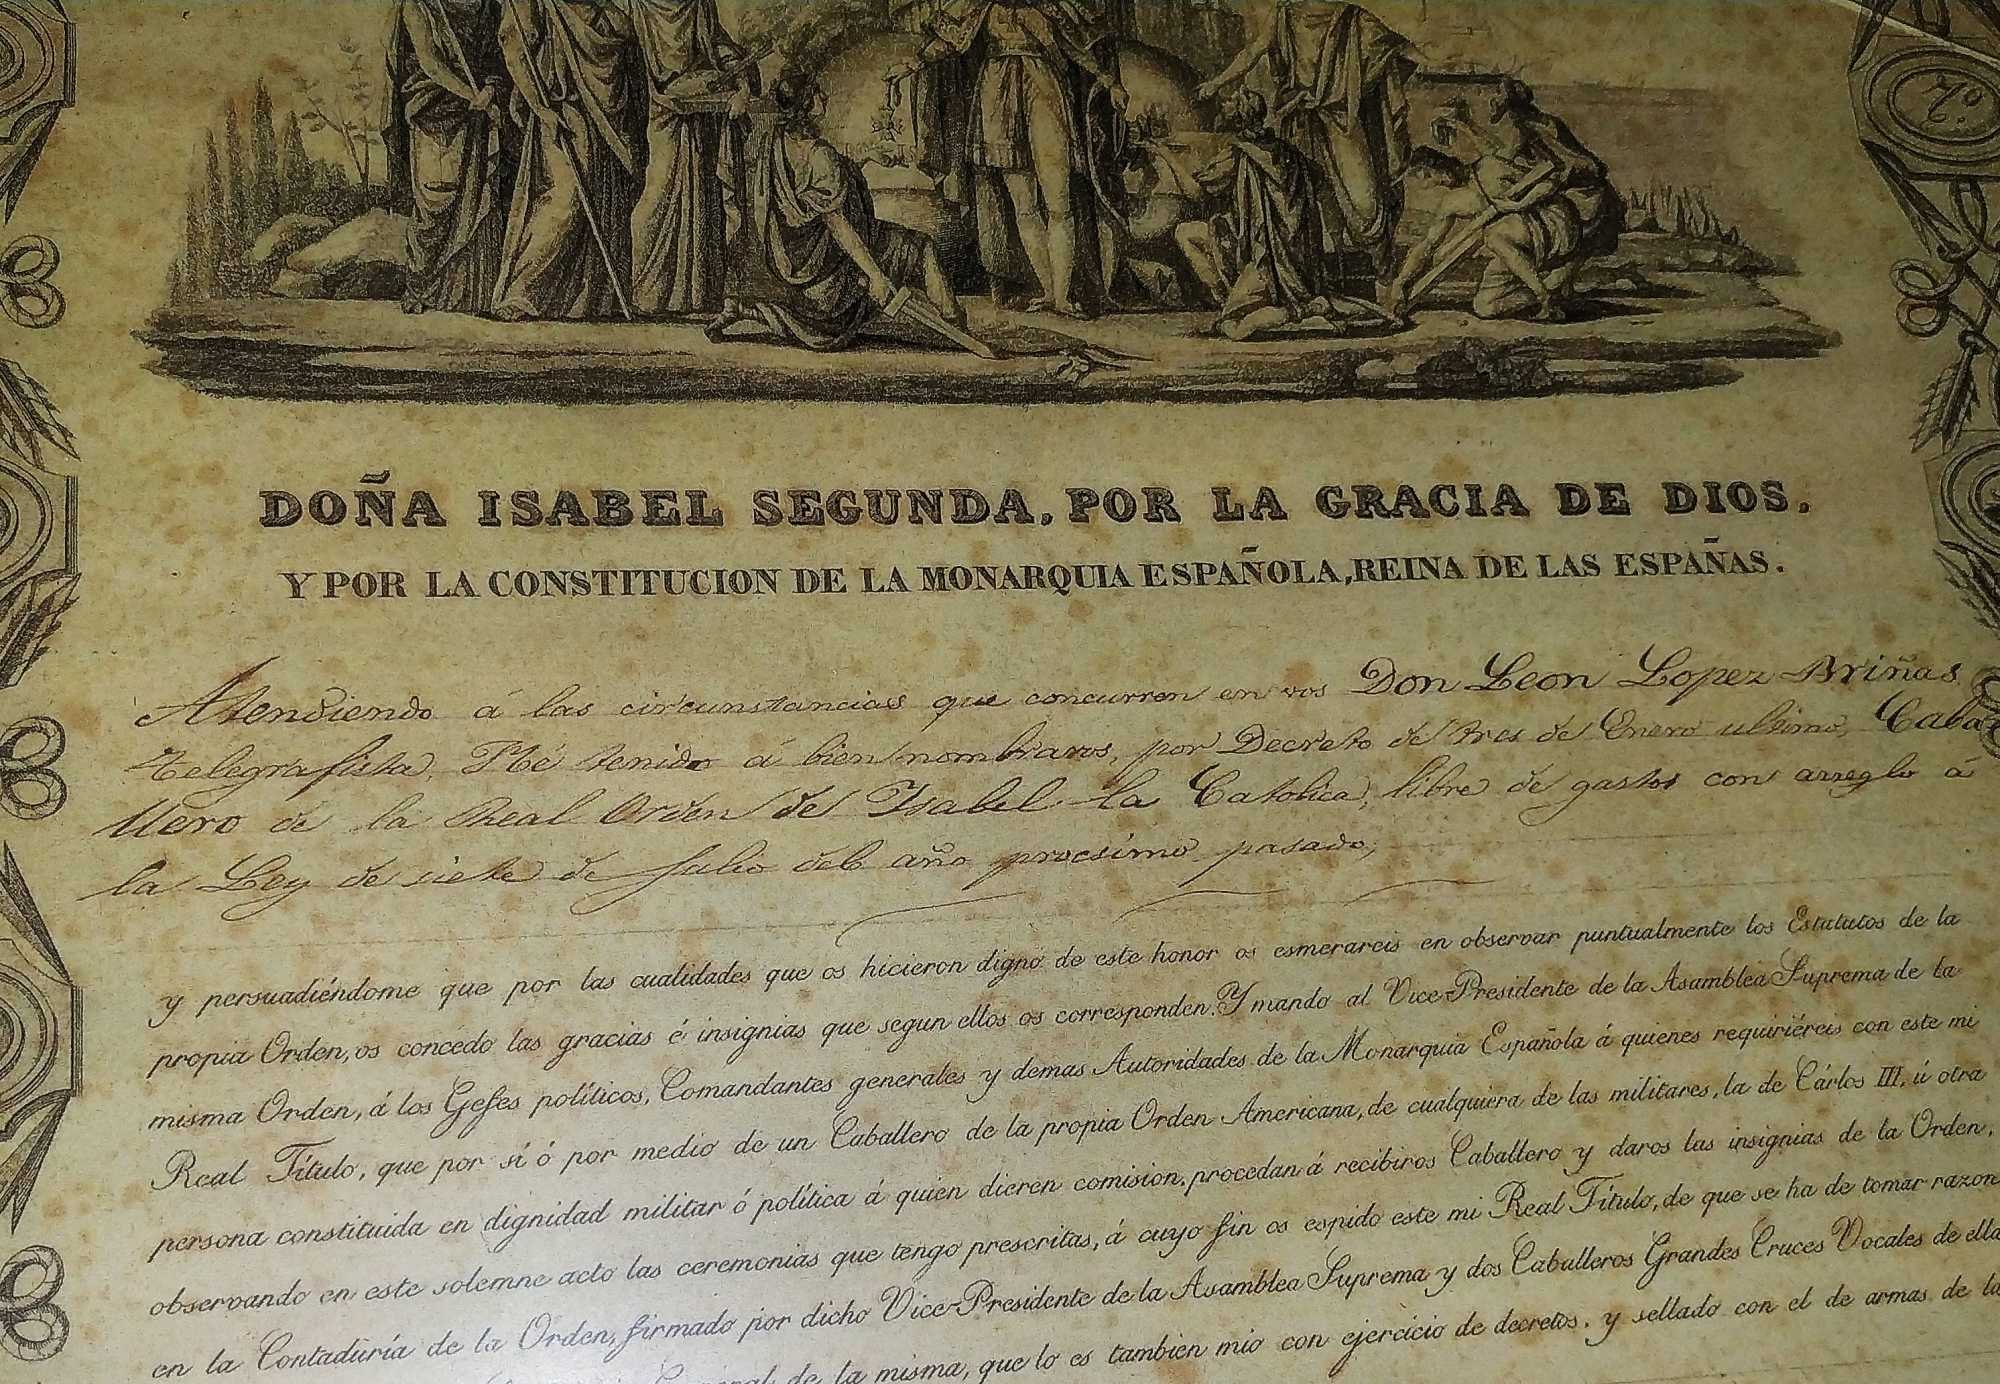 7.º
DOÑA ISABEL SEGUNDA, POR LA GRACIA DE DIOS.
Y POR LA CONSTITUCION DE LA MONARQUIA ESPAÑOLA, REINA DE LAS ESPAÑAS.
Atendiendo á las circunstancias que concurren en vos Don Leon Lopez Briñas
Telegrafista, Hé tenido á bien nombraros, por Decreto de tres de Enero ultimo, Caba-
llero de la Real Orden de Isabel la Catolica, libre de gastos con arreglo á
la Ley de siete de Julio del año procsimo pasado,
y persuadiéndome que por las cualidades que os hicieron digno de este honor os esmerareis en observar puntualmente los Estatutos de la
propia Orden, os concedo las gracias é insignias que segun ellos os corresponden. Y mando al Vice-Presidente de la Asamblea Suprema de la
misma Orden, á los Gefes políticos, Comandantes generales y demas Autoridades de la Monarquia Española á quienes requiriéreis con este mi
Real Título, que por sí ó por medio de un Caballero de la propia Orden Americana, de cualquiera de las militares, la de Cárlos III, ú otra
persona constituida en dignidad militar ó política á quien dieren comision, procedan á recibiros Caballero y daros las insignias de la Orden,
observando en este solemne acto las ceremonias que tengo prescritas, á cuyo fin os espido este mi Real Título, de que se ha de tomar razon
en la Contaduría de la Orden, firmado por dicho Vice-Presidente de la Asamblea Suprema y dos Caballeros Grandes Cruces Vocales de ella
de la misma, que lo es tambien mio con ejercicio de decretos, y sellado con el de armas de la